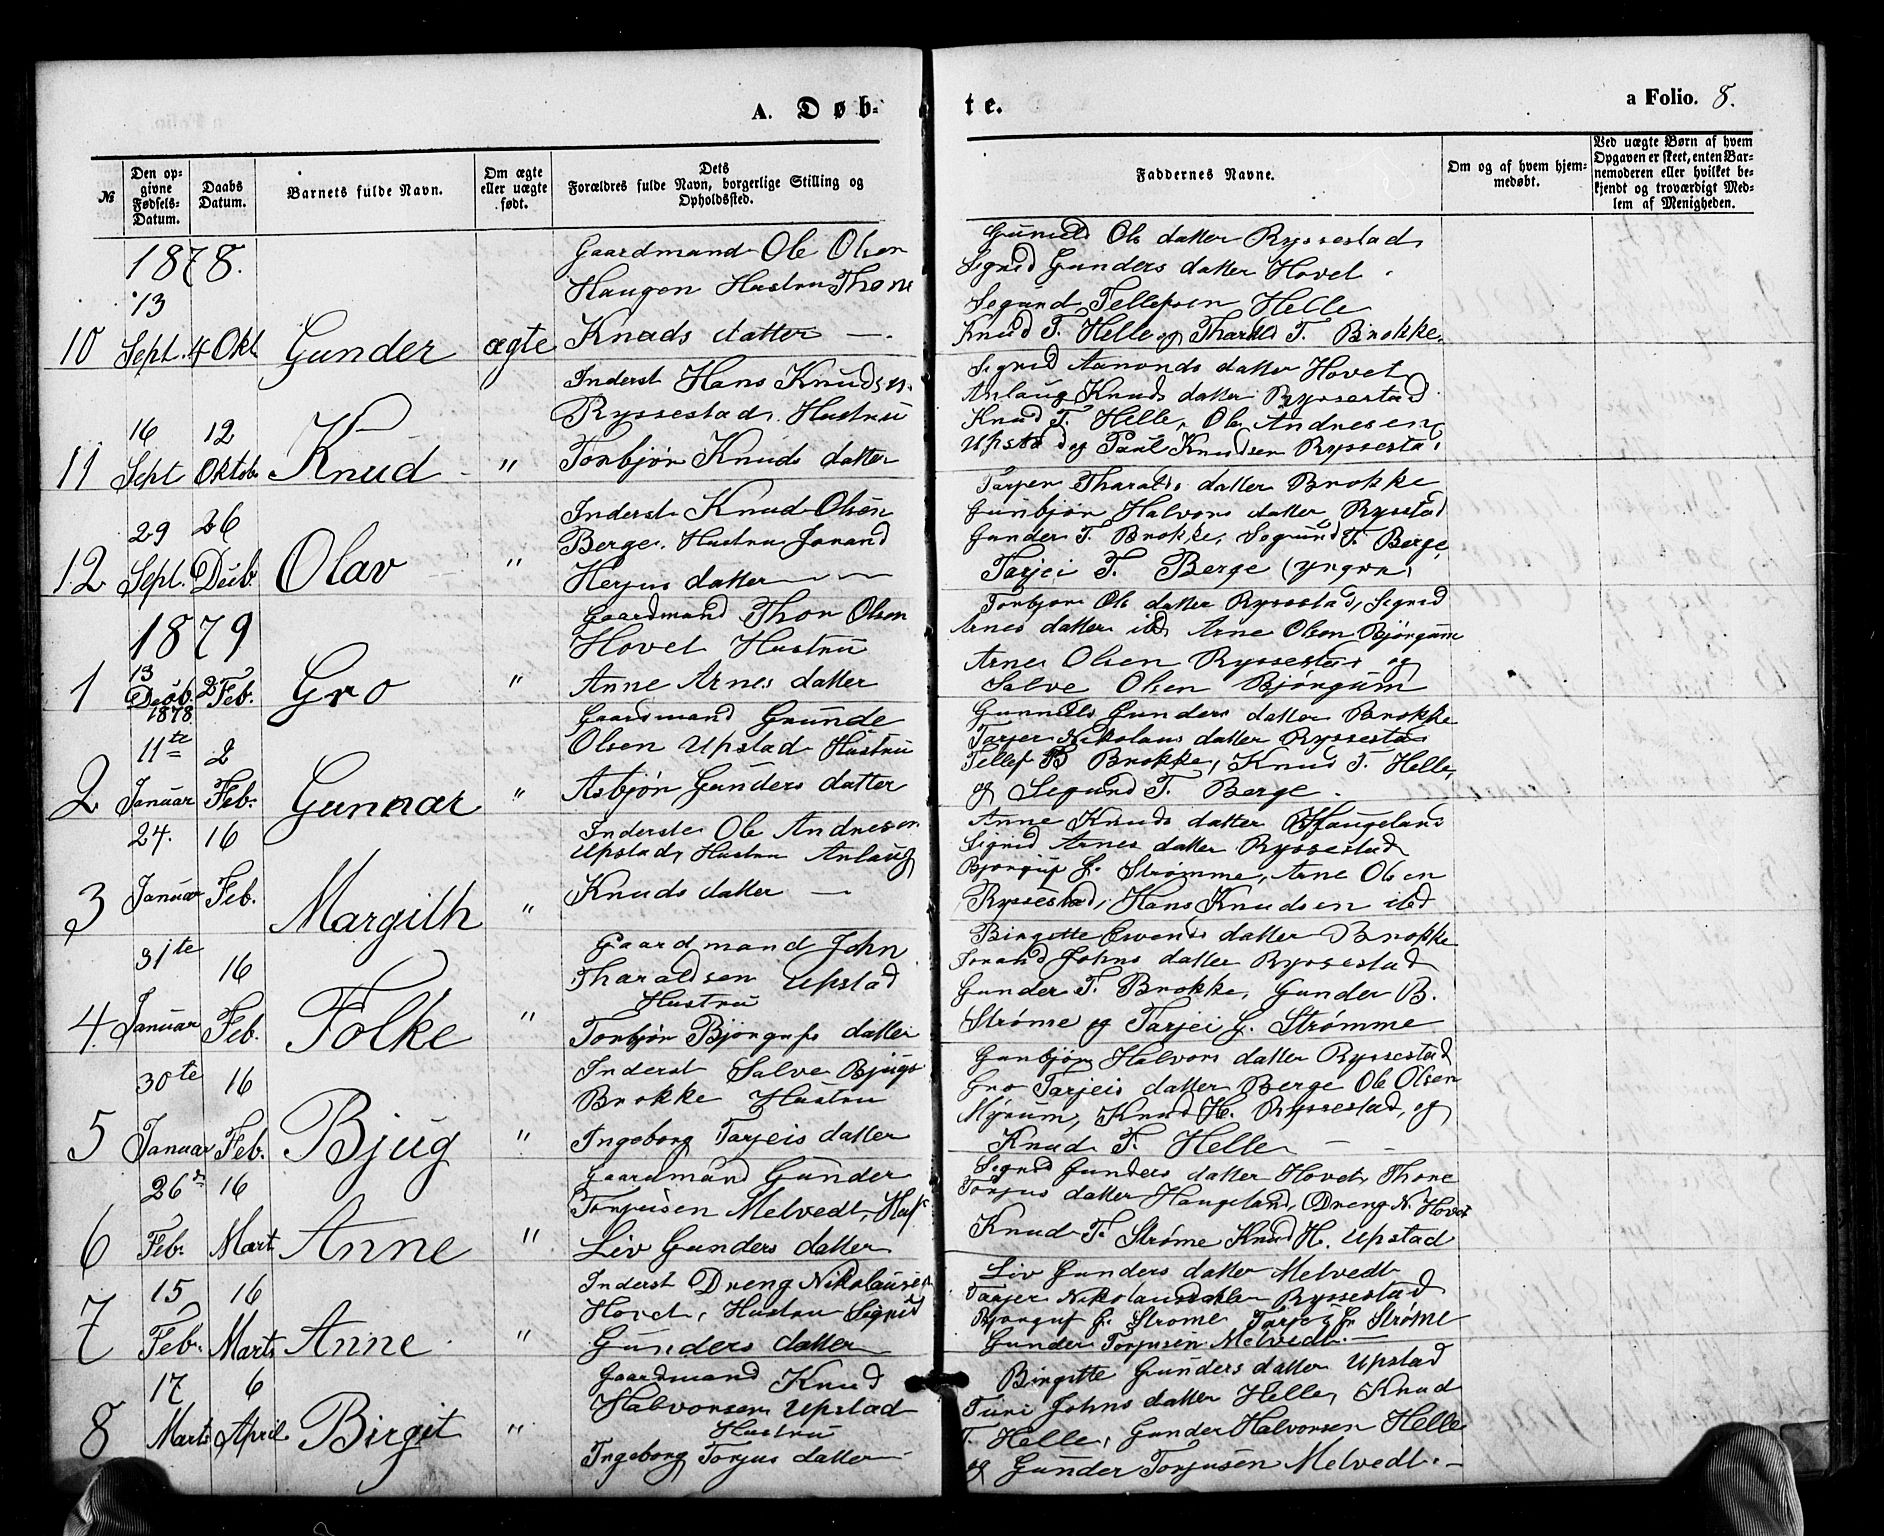 A. Døb-
te.
a Folio. 8.
№
Den op-
givne
Fødsels-
Datum.
Daabs
Datum.
Barnets fulde Navn.
Om ægte
eller uægte
født.
Dets
Forældres fulde Navn, borgerlige Stilling og
Opholdssted.
Faddernes Navne.
Om og af hvem hjem-
medøbt.
Ved uægte Børn af hvem
Opgaven er skeet, enten Bar-
nemoderen eller hvilket be-
kjendt og troværdigt Med-
lem af Menigheden.
1878.
10
13
Sept.
4 Okt
Gunder
ægte
Gaardmand Ole Olsen
Haugen Hustru Thone
Knuds datter —
Gunild Ols datter Ryssestad
Sigrid Gunders datter Hovet
Segund Tellefsen Helle
Knud T. Helle og Tharld T. Brokke.
11
16
Sept
12
Oktob
Knud
"
Inderst Hans Knudsen
Ryssestad Hustru
Torbjør Knuds datter
Sigrid Aamonds datter Hovet
Anlaug Knuds datter Ryssestad
Knud T. Helle, Ole Andresen
Upstad og Paul Knudsen Ryssestad
12
29
Sept.
26
Decb.
Olav
"
Inderst Knud Olsen
Berge. Hustru Jorand
Herjus datter —
Tarjer Tharalds datter Brokke
Gunbjør Halvors datter Rysstad
Gunder T. Brokke, Segund T. Berge
Tarjei T. Berge (yngre)
1879
1
13
Decb.
1878
2 Feb.
Gro
"
Gaardmand Thor Olsen
Hovet Hustru
Anne Arnes datter
Torbjør Ols datter Ryssestad, Sigrid
Arnes datter ibd Arne Olsen Bjørgum
Arne Olsen Ryssestad og
Salve Olsen Bjørgum
2
11te
Januar
2
Feb.
Gunnar
"
Gaardmand Grunde
Olsen Upstad Hustru
Asbjør Gunders datter
Gunnild Gunders datter Brokke
Tarjer Nikolaus datter Ryssestad
Tellef B Brokke, Knud T. Helle,
og Segund T. Berge.
3
24.
Januar
16
Feb.
Margith
"
Inderste Ole Andresen
Upstad, Hustru Anlaug
Knuds datter —
Anne Knuds datter Haugeland
Sigrid Arnes datter Ryssestad
Bjørguf G. Strømme, Arne Olsen
Ryssestad, Hans Knudsen ibd
4.
31te
Januar
16
Feb.
Folke
"
Gaardmand John
Tharaldsen Upstad
Hustru
Torbjør Bjørgufs datter
Birgitte Evends datter Brokke
Jorand Johns datter Ryssestad
Gunder T. Brokke, Gunder B.
Strøme og Tarjei G. Strømme
5
30te
Januar
16
Feb.
Bjug
"
Inderst Salve Bjugs
Brokke Hustru
Ingeborg Tarjeis datter
Gunbjør Halvors datter Ryssestad
Gro Tarjeis datter Berge Ole Olsen
Myrum, Knud H. Ryssestad, og
Knud T. Helle —
6
26
Feb.
16
Mart
Anne
"
Gaardmand Gunder
Torjusen Melvedt, Hus
Liv Gunders datter
Sigrid Gunders datter Hovet, Thone
Torjus datter Haugeland, Dreng N. Hovet
Knud T. Strøme Knud H. Upstad
7
15
Feb.
16
Marts
Anne
"
Inderst Dreng Nikolausen
Hovet, Hustru Sigrid
Gunders datter
Liv Gunders datter Melvedt
Tarjer Nikolausdatter Ryssestad
Bjørguf G. Strøme Tarjei G. Strøme
Gunder Torjusen Melvedt. —
8
17
Marts
6
April
Birgit
"
Gaardmand Knud
Halvorsen Upstad
Hustru
Ingeborg Torjus datter
Birgitte Gunders datter Upstad
Turi Johns datter Helle, Knud
T. Helle, Gunder Halvorsen Helle
og Gunder Torjusen Melvedt. —